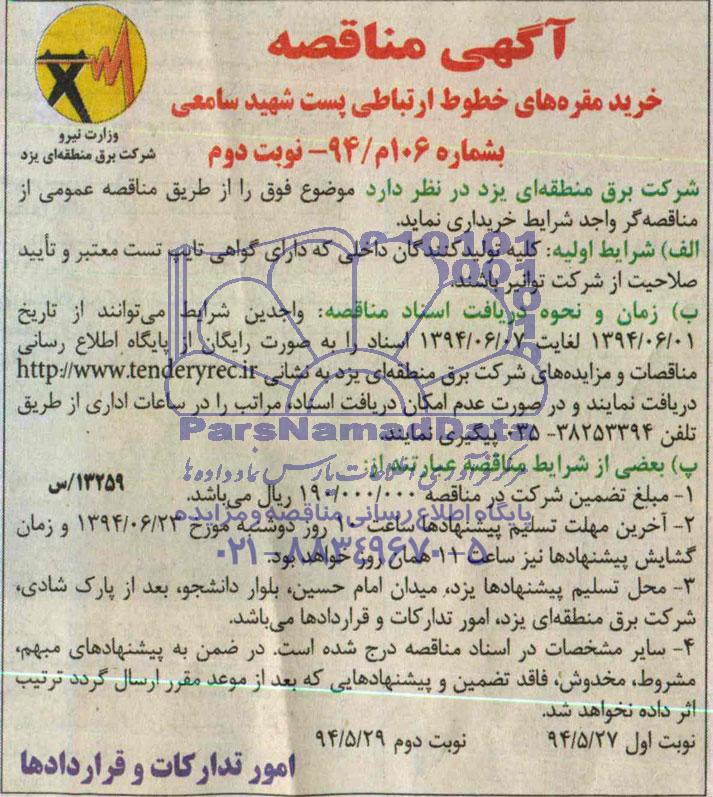 آگهی مناقصه
خرید مقره‌های خطوط ارتباطی پست شهید سامعی
بشماره ۱۰۶م/۹۴- نوبت دوم
وزارت نیرو
شرکت برق منطقه‌ای یزد
شرکت برق منطقه‌ای یزد در نظر دارد موضوع فوق را از طریق مناقصه عمومی از
مناقصه‌گر واجد شرایط خریداری نماید.
الف) شرایط اولیه: کلیه تولیدکنندگان داخلی که دارای گواهی تایپ تست معتبر و تأیید
صلاحیت از شرکت توانیر باشند.
ب) زمان و نحوه دریافت اسناد مناقصه: واجدین شرایط می‌توانند از تاریخ
۱۳۹۴/۰۶/۰۱ لغایت ۱۳۹۴/۰۶/۰۷ اسناد را به صورت رایگان از پایگاه اطلاع رسانی
مناقصات و مزایده‌های شرکت برق منطقه‌ای یزد به نشانی http://www.tenderyrec.ir
دریافت نمایند و در صورت عدم امکان دریافت اسناد، مراتب را در ساعات اداری از طریق
تلفن ۳۸۲۵۳۳۹۴- ۰۳۵ پیگیری نمایند.
پ) بعضی از شرایط مناقصه عبارتند از:
۱۳۲۵۹/س
۱- مبلغ تضمین شرکت در مناقصه ۱۹۰/۰۰۰/۰۰۰ ریال می‌باشد.
۲- آخرین مهلت تسلیم پیشنهادها ساعت ۱۰ روز دوشنبه مورخ ۱۳۹۴/۰۶/۲۳ و زمان
گشایش پیشنهادها نیز ساعت ۱۱ همان روز خواهد بود.
۳- محل تسلیم پیشنهادها یزد، میدان امام حسین، بلوار دانشجو، بعد از پارک شادی،
شرکت برق منطقه‌ای یزد، امور تدارکات و قراردادها می‌باشد.
۴- سایر مشخصات در اسناد مناقصه درج شده است. در ضمن به پیشنهادهای مبهم،
مشروط، مخدوش، فاقد تضمین و پیشنهادهایی که بعد از موعد مقرر ارسال گردد ترتیب
اثر داده نخواهد شد.
نوبت اول ۹۴/۵/۲۷ نوبت دوم ۹۴/۵/۲۹
امور تدارکات و قراردادها
ParsNamadData
مرکز فرآوری اطلاعات پارس نماد داده‌ها
پایگاه اطلاع رسانی مناقصه و مزایده
۰۲۱-۸۸۳۴۹۶۷۰-۵